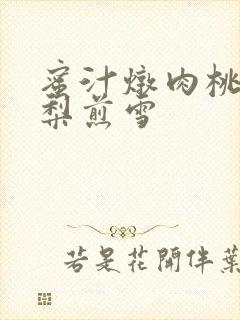 蜜汁燉肉桃
梨煎雪
若是花開伴葉